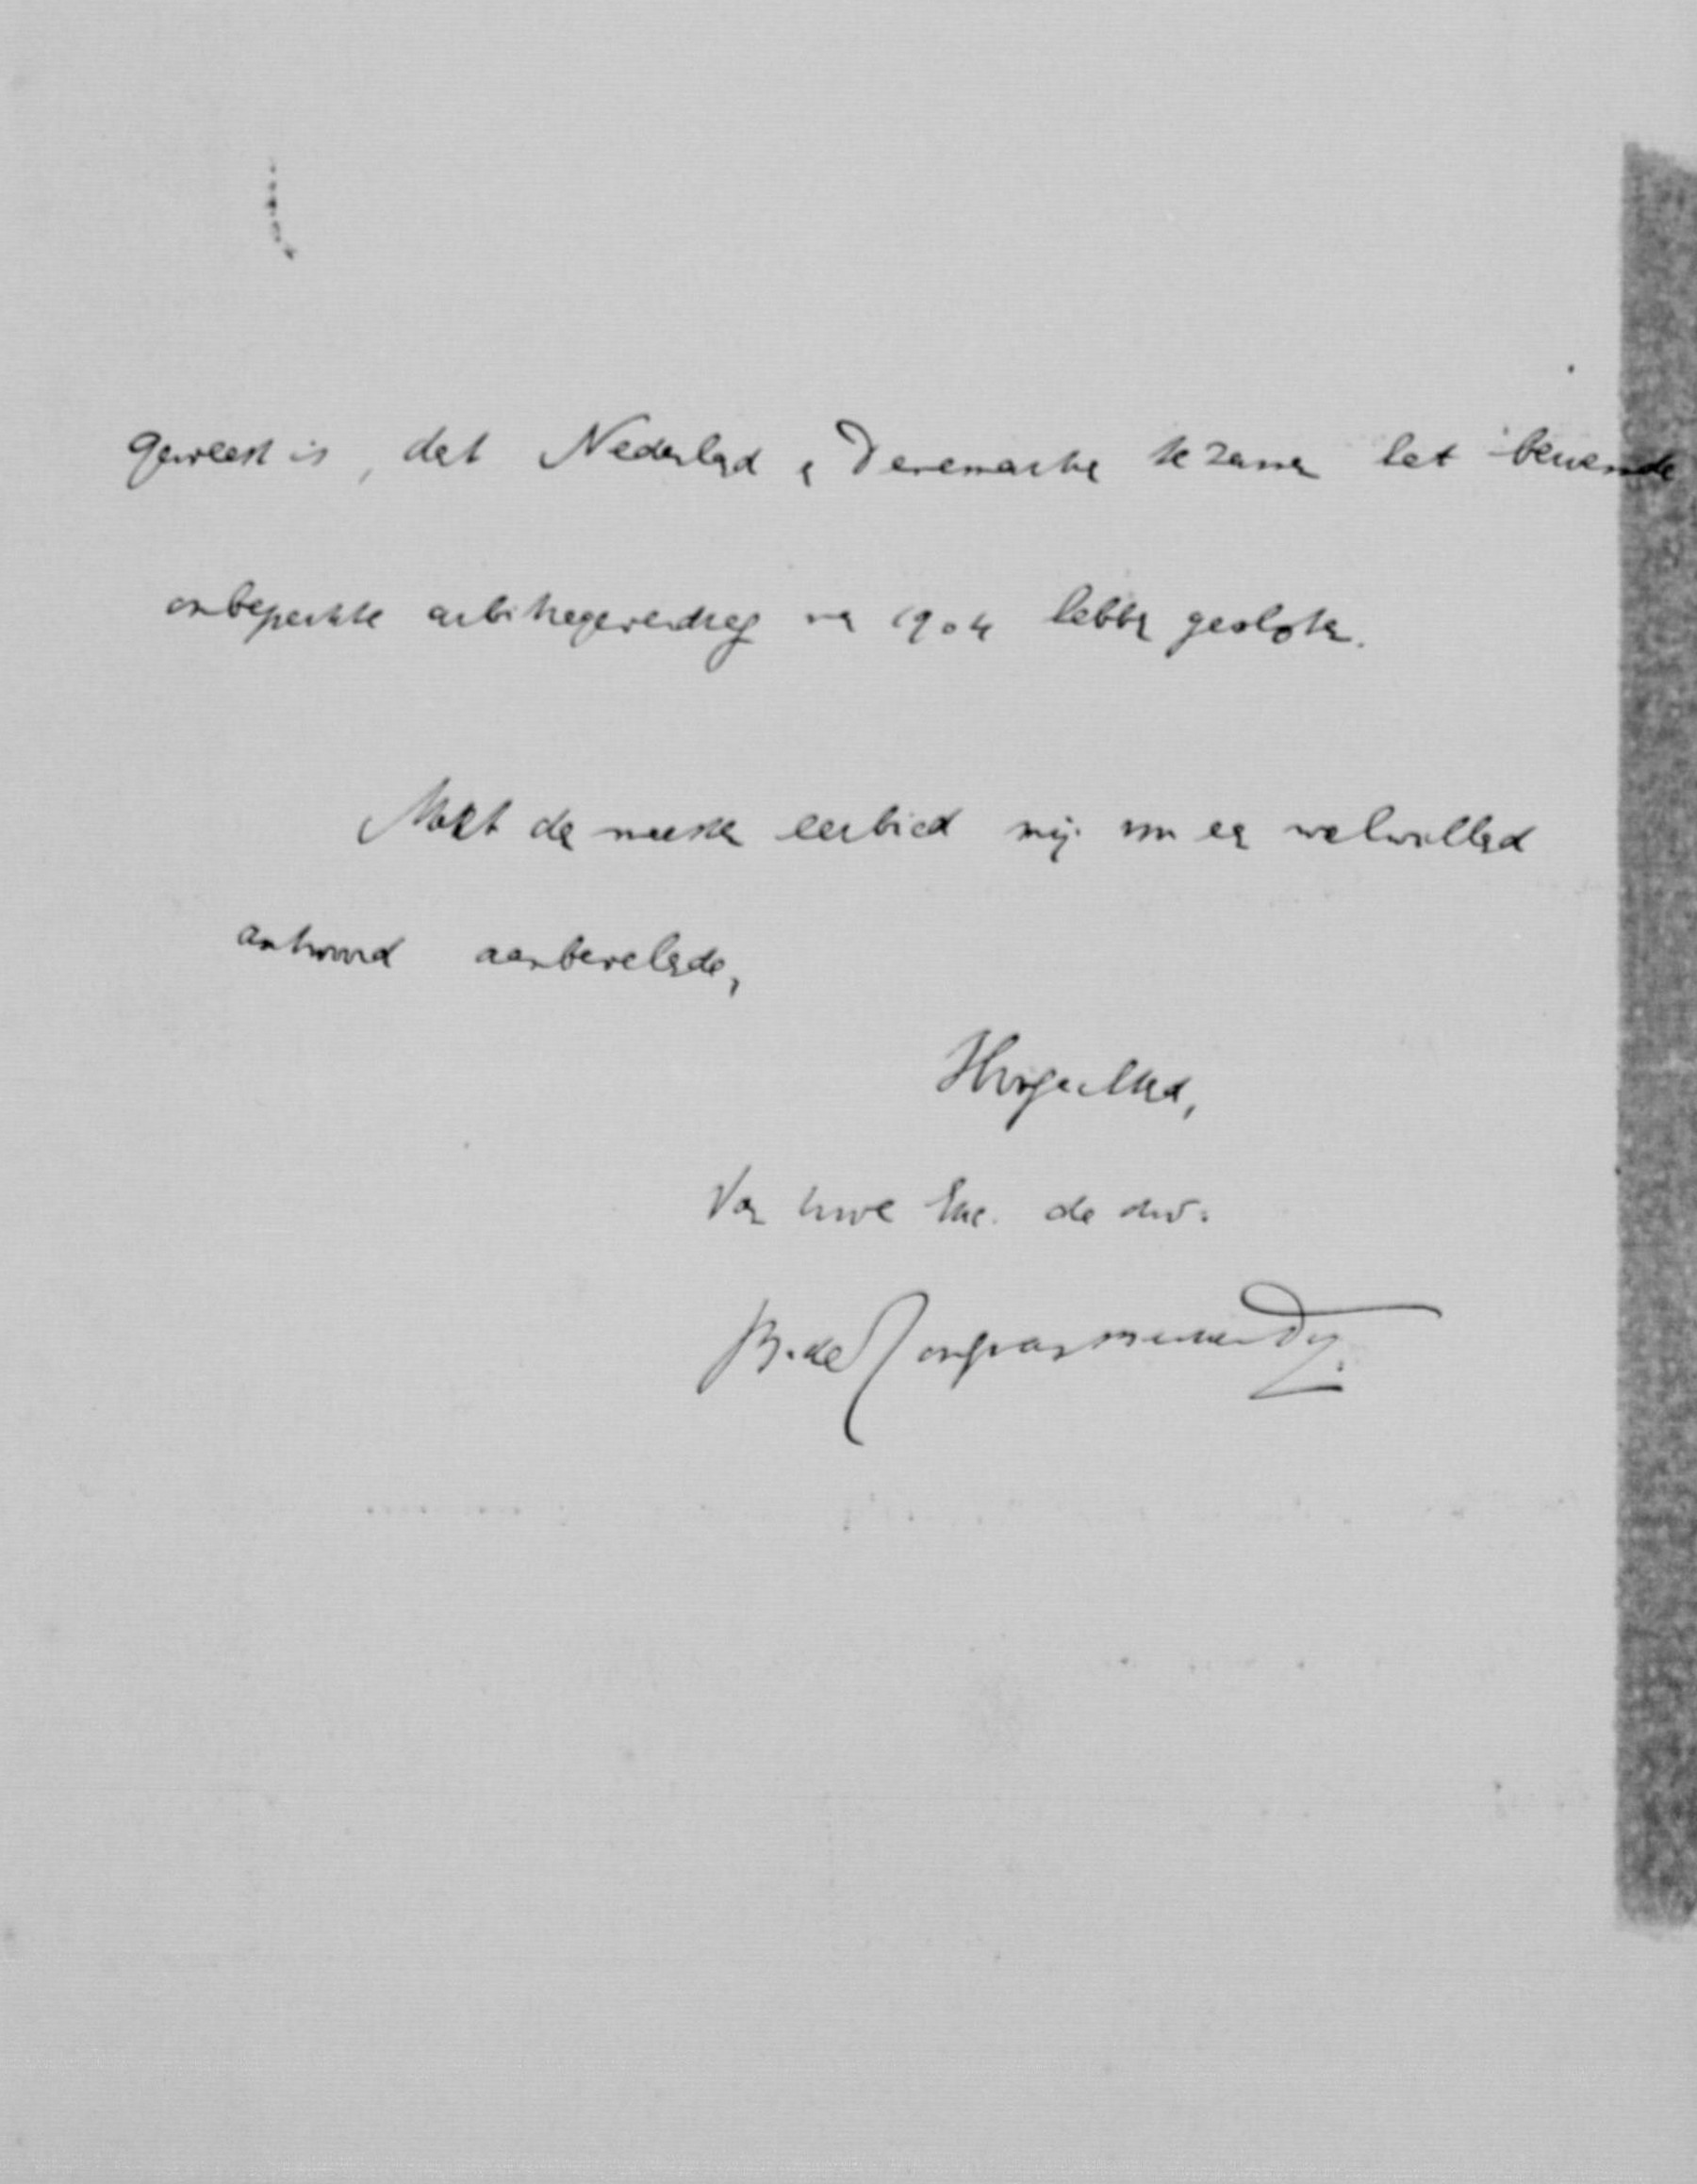 geweest is, dat Nederland en Denemarken te zamen het beroemde
onbeperkte arbitrageverdrag van 1904 hebben gesloten.
Met de meeste eerbied mij om een welwillend
antwoord aanbevelende,
Hoogachtend,
Van Uwe Exc. de dw.
B. de Jong van Beek en Donk